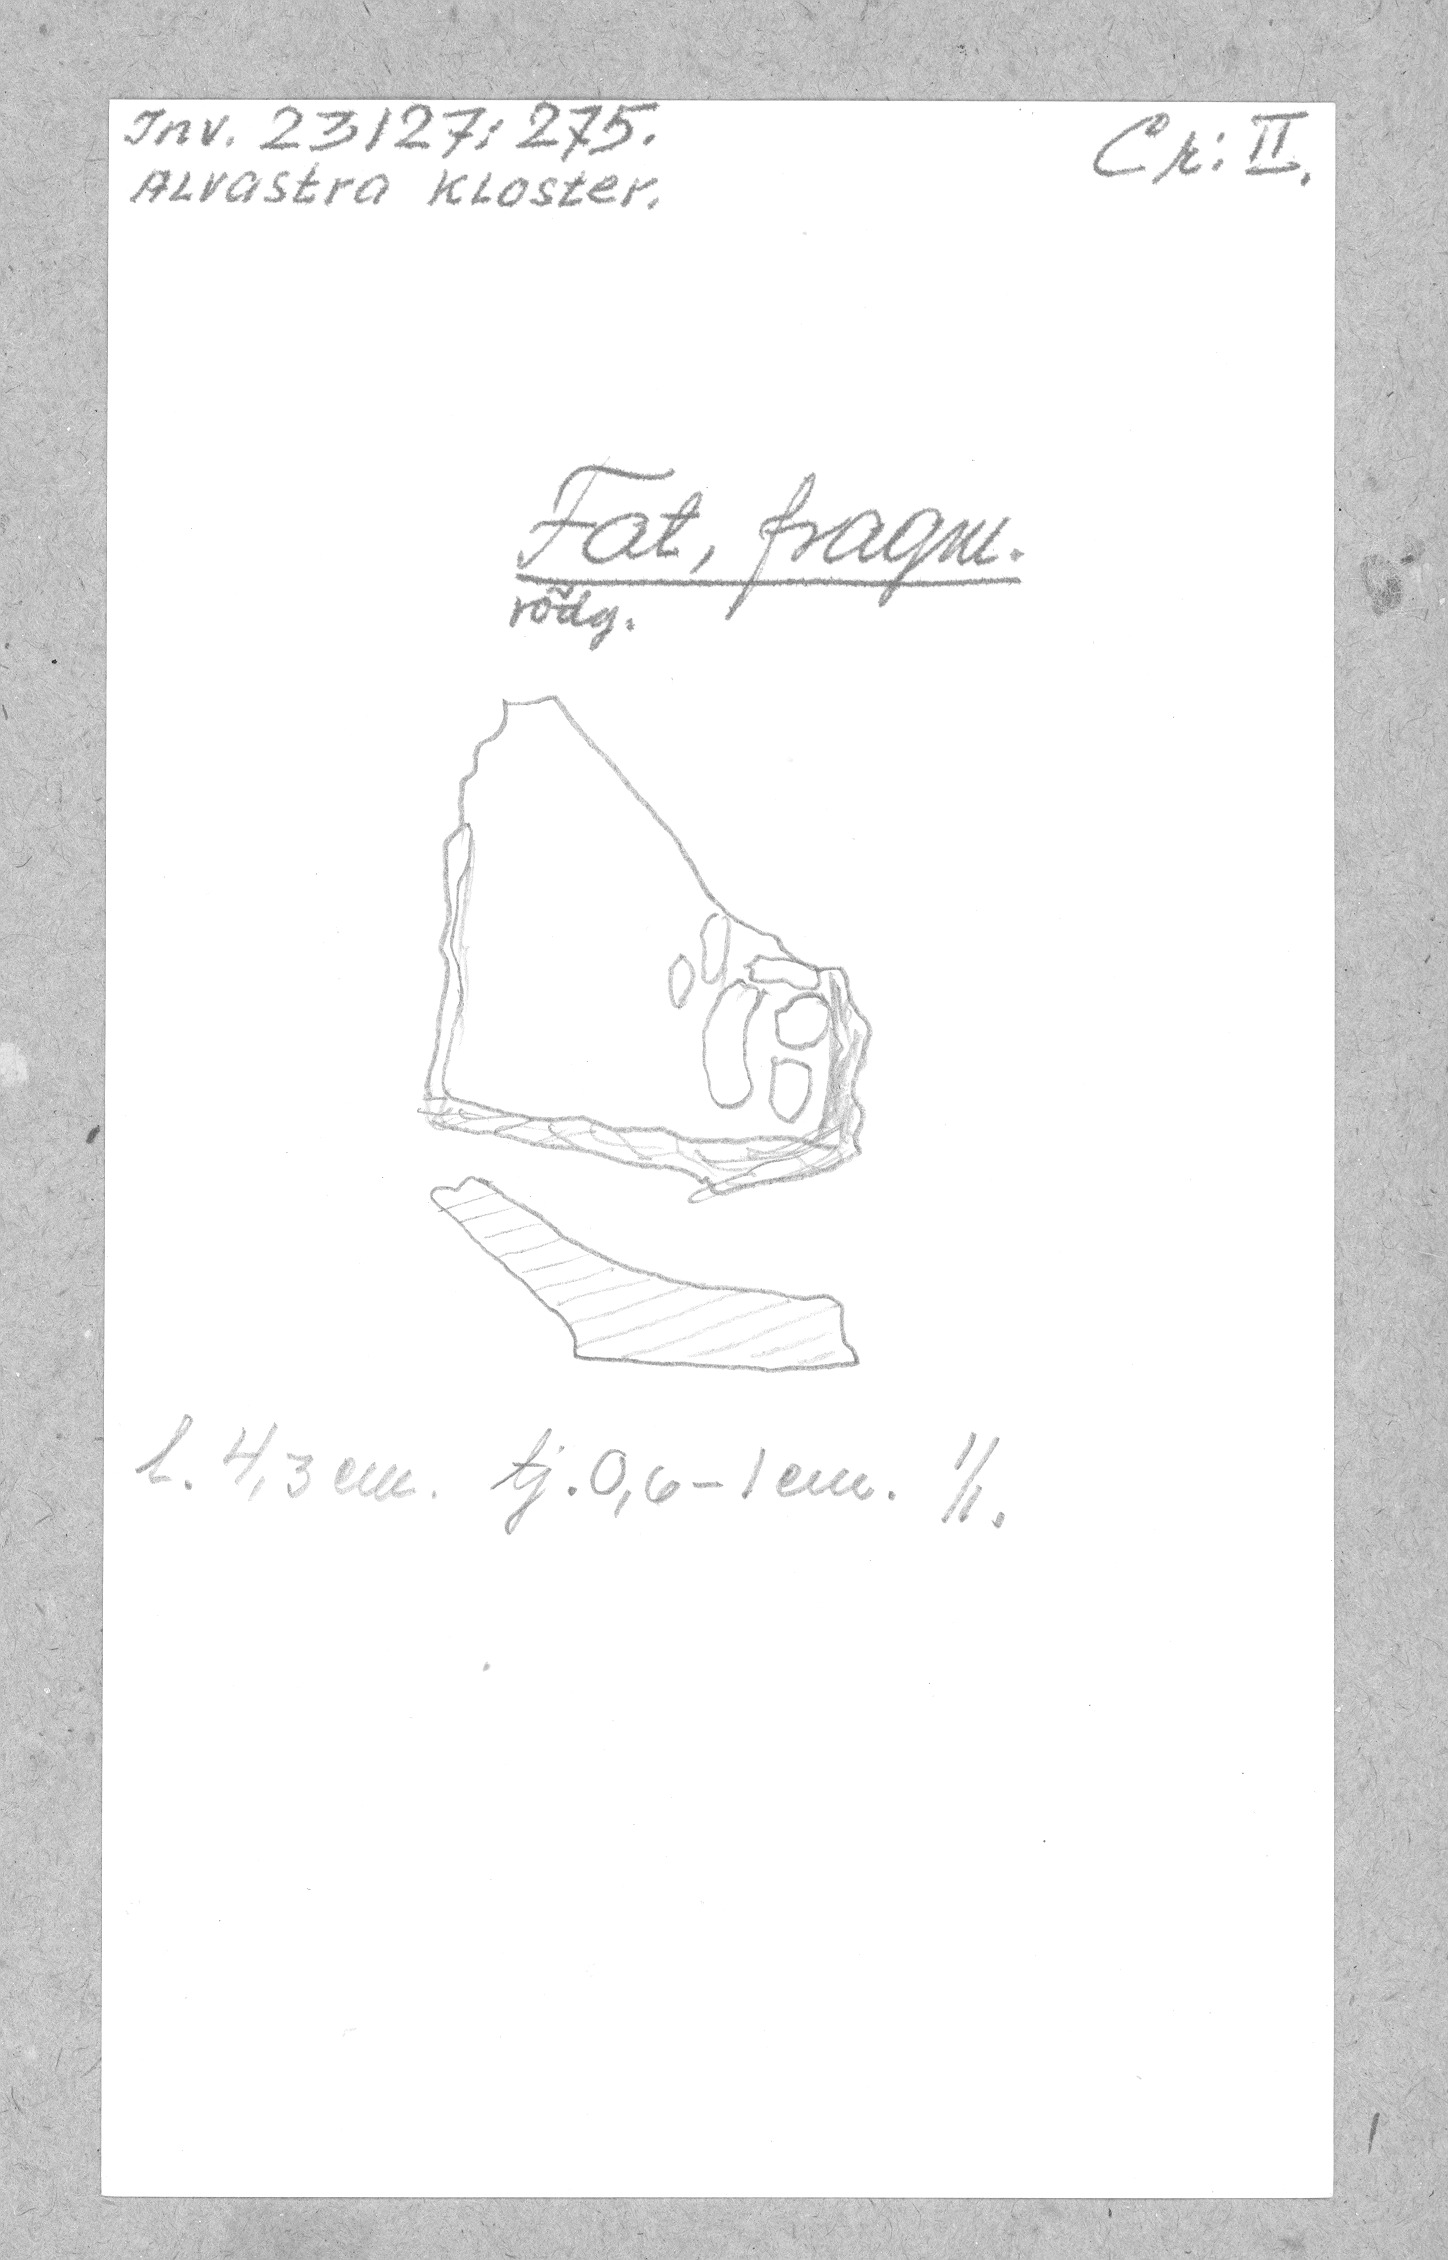 Inv. 23127: 275.
Cr: II.
Alvastra Kloster.
Fat, fragm.
rödg.
L. 4,3 cm. tj. 0,6-1 cm. 1/1.